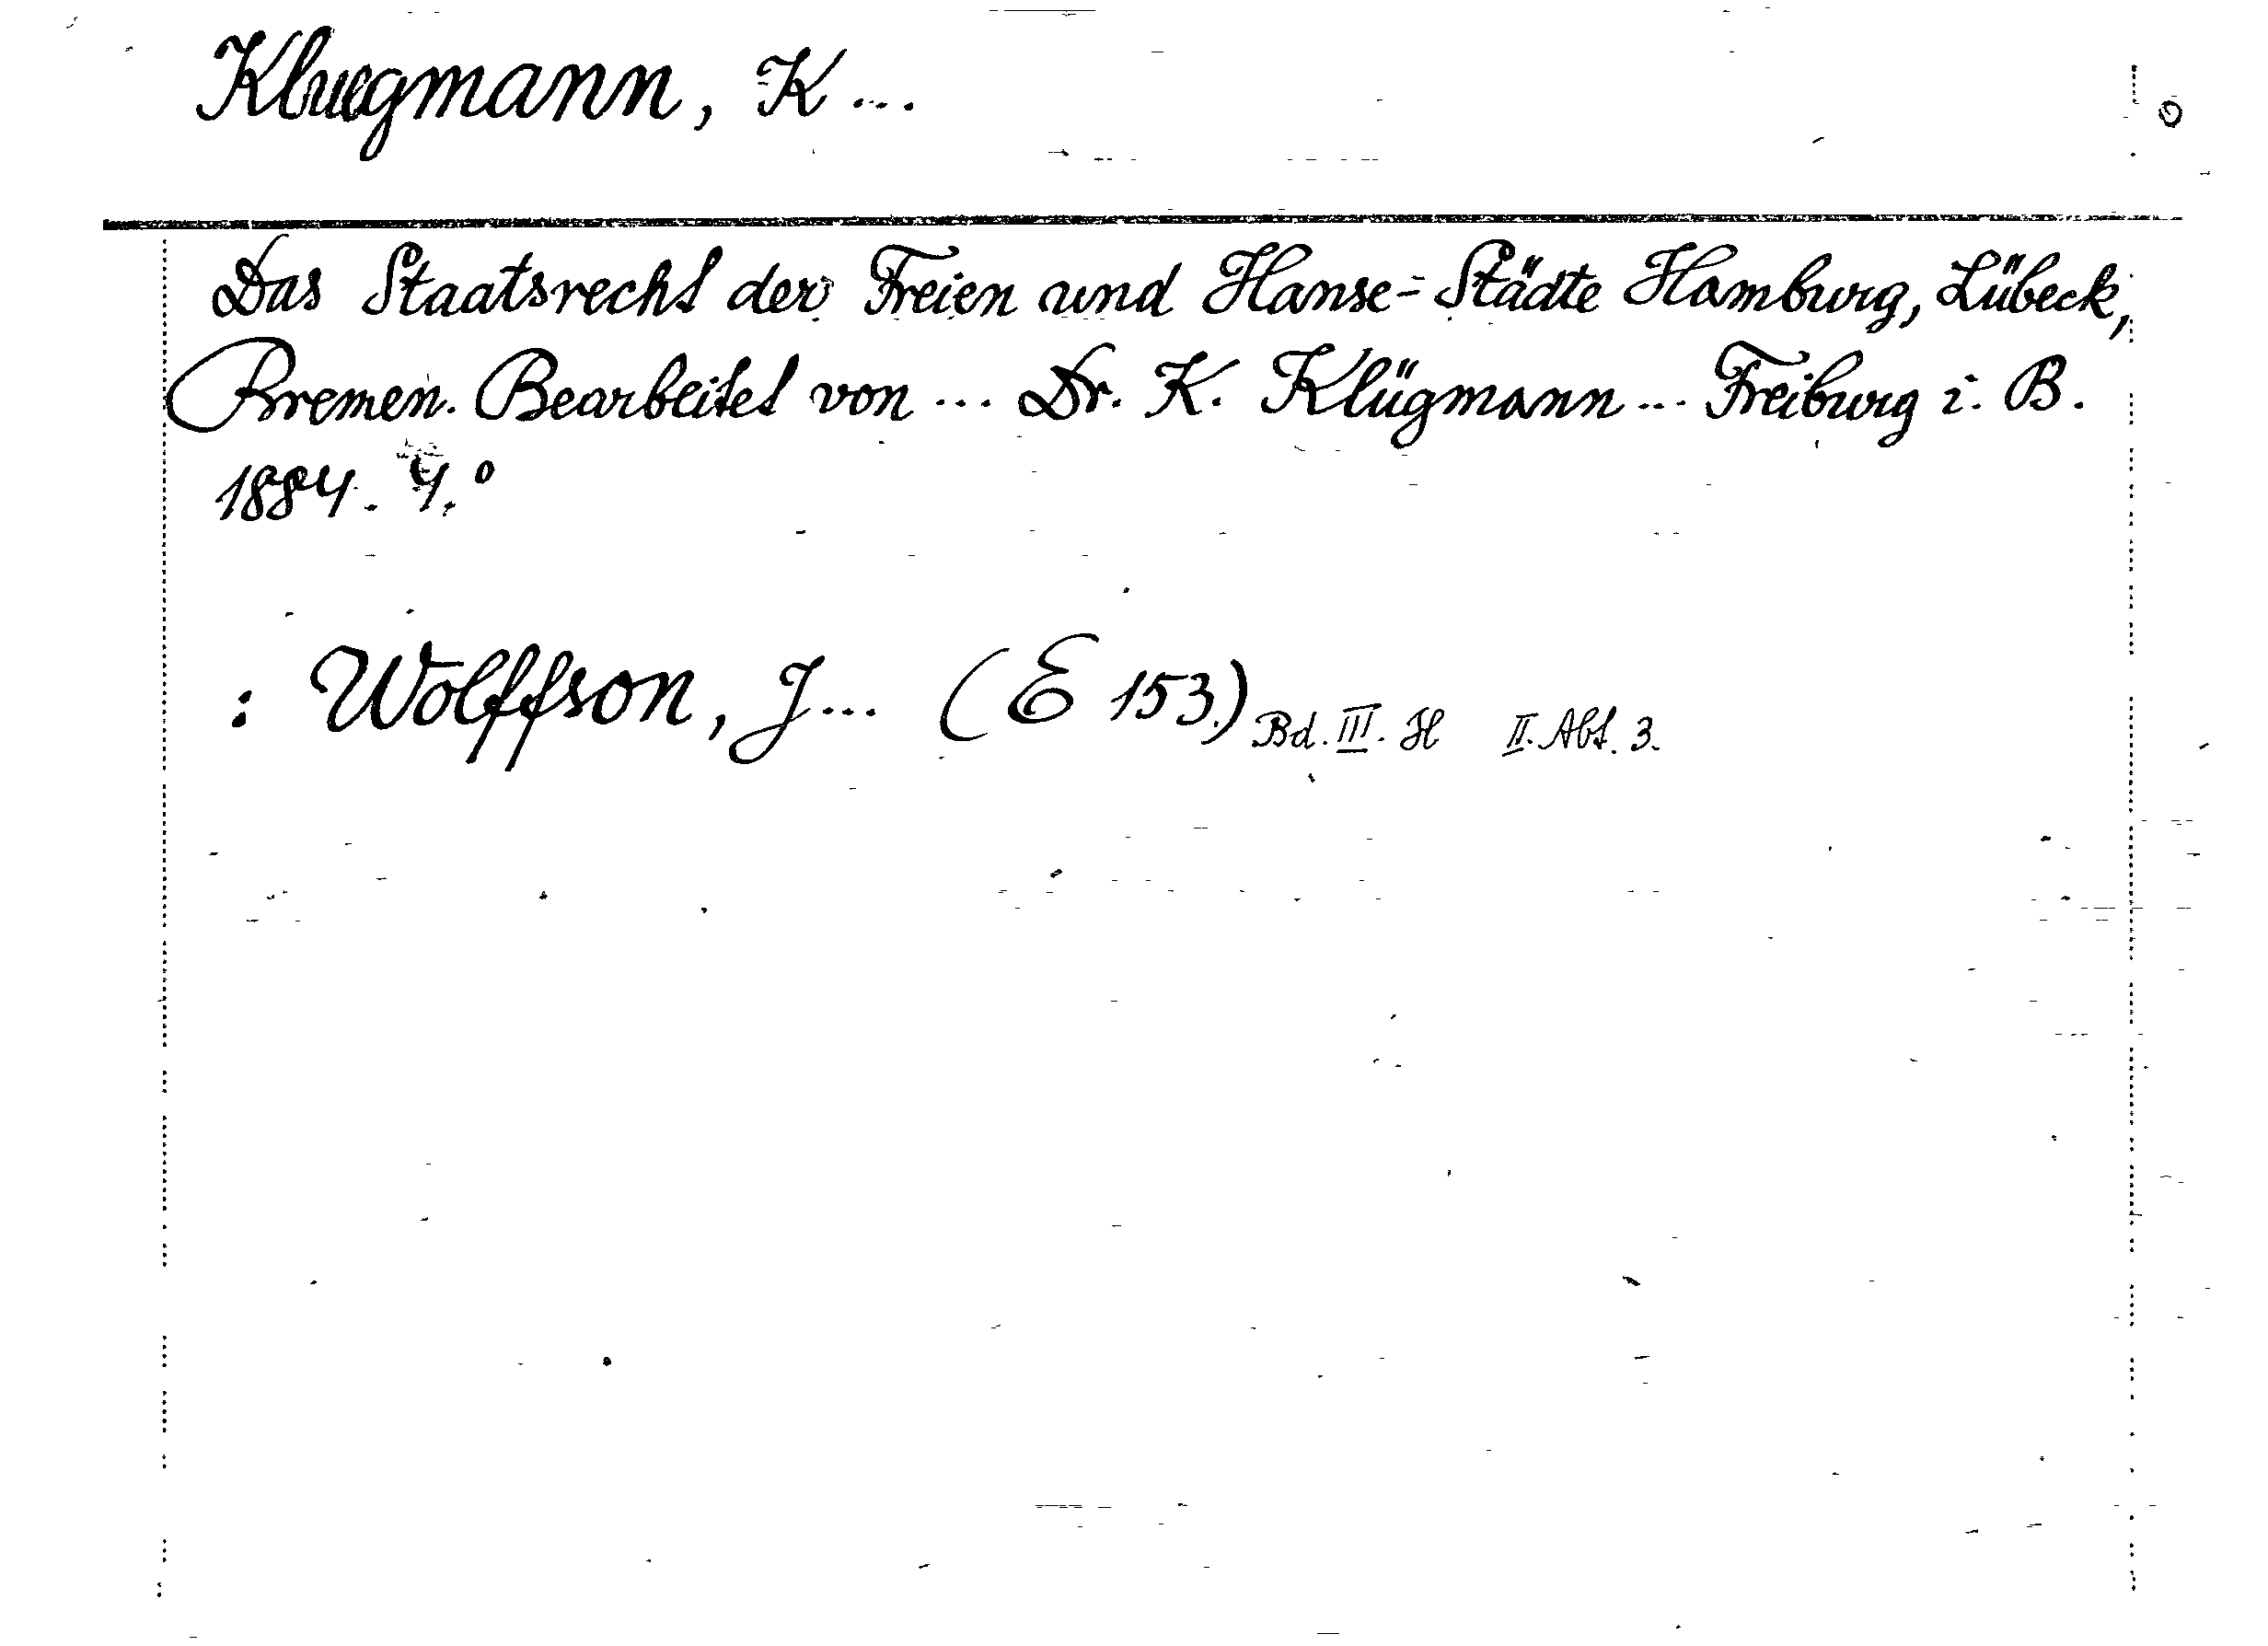 Kluegmann, K ...
Das Staatsrecht der Freien und Hanse=Städte Hamburg, Lübeck,
Bremen. Bearbeitet von ... Dr. K. Klügmann ... Freiburg i. B.
1884. 4.°
: Wolffson, J... (E 153.) Bd. III. H II. Abt. 3.